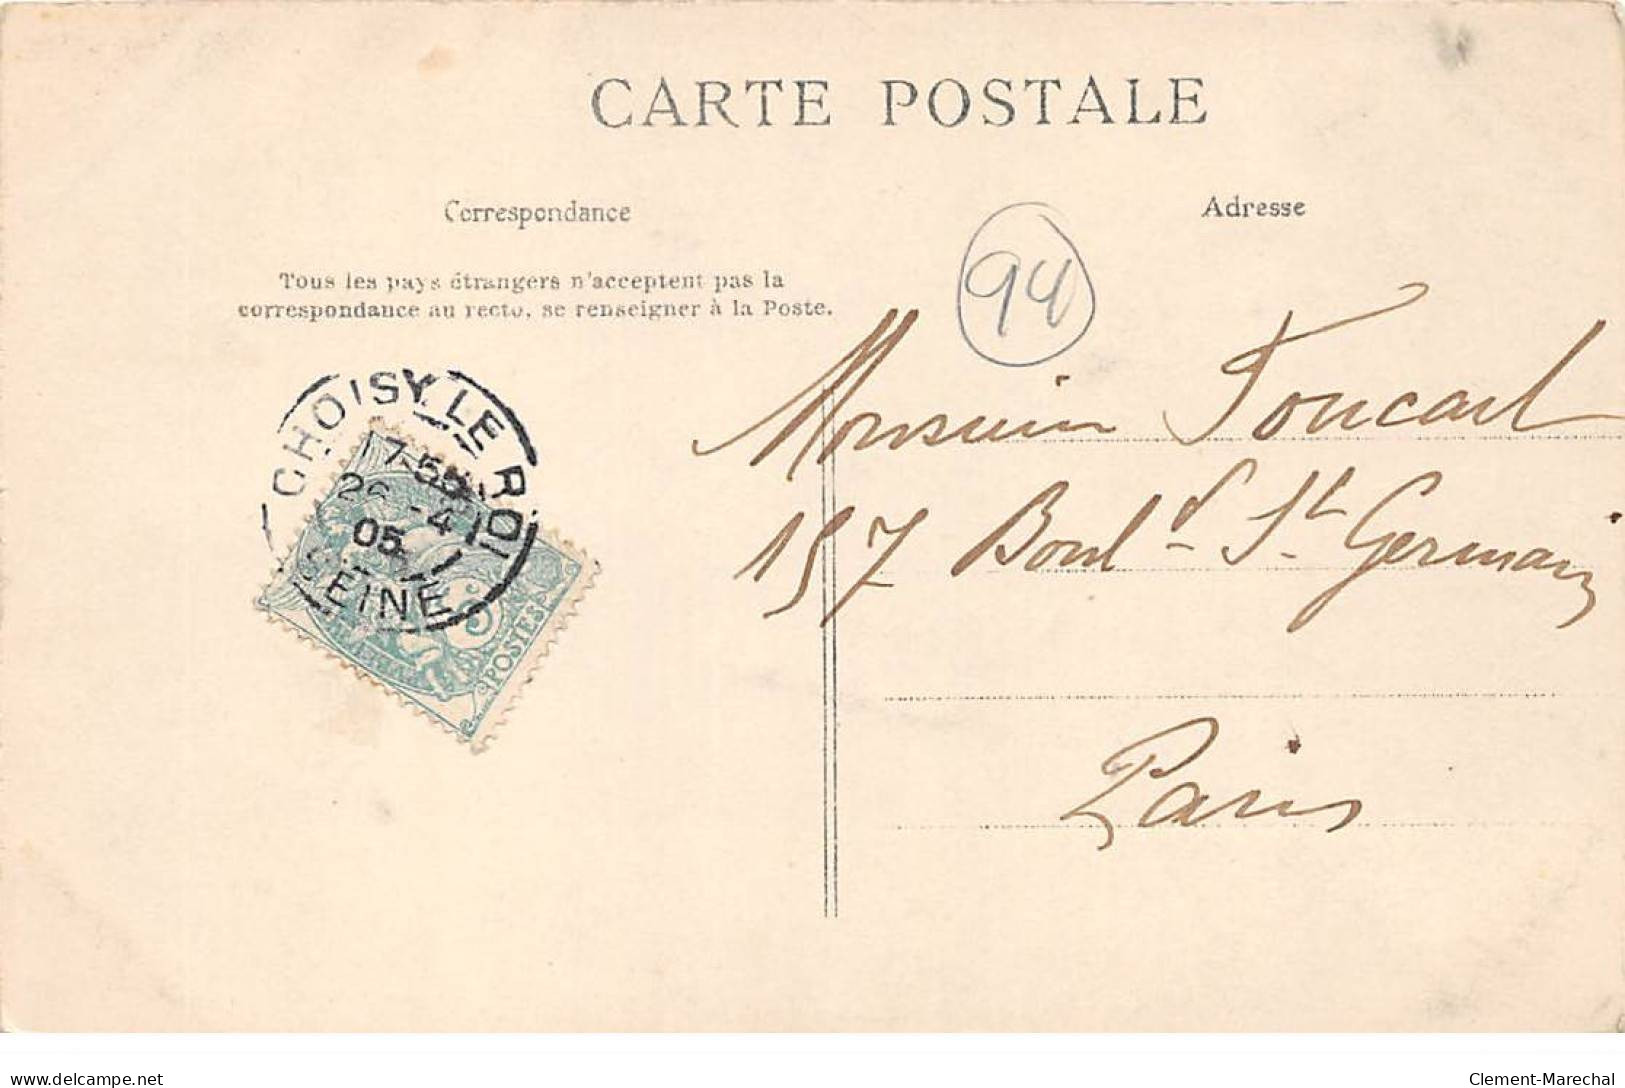 CARTE POSTALE
Correspondance
Adresse
94
Tous les pays étrangers n'acceptent pas la
correspondance au recto, se renseigner à la Poste.
CHOISY LE ROI
17-55
26 -4
05
SEINE
POSTES
Monsieur Foucart
157 Boul d - St Germain
Paris
delcampe.net
Clement-Marechal